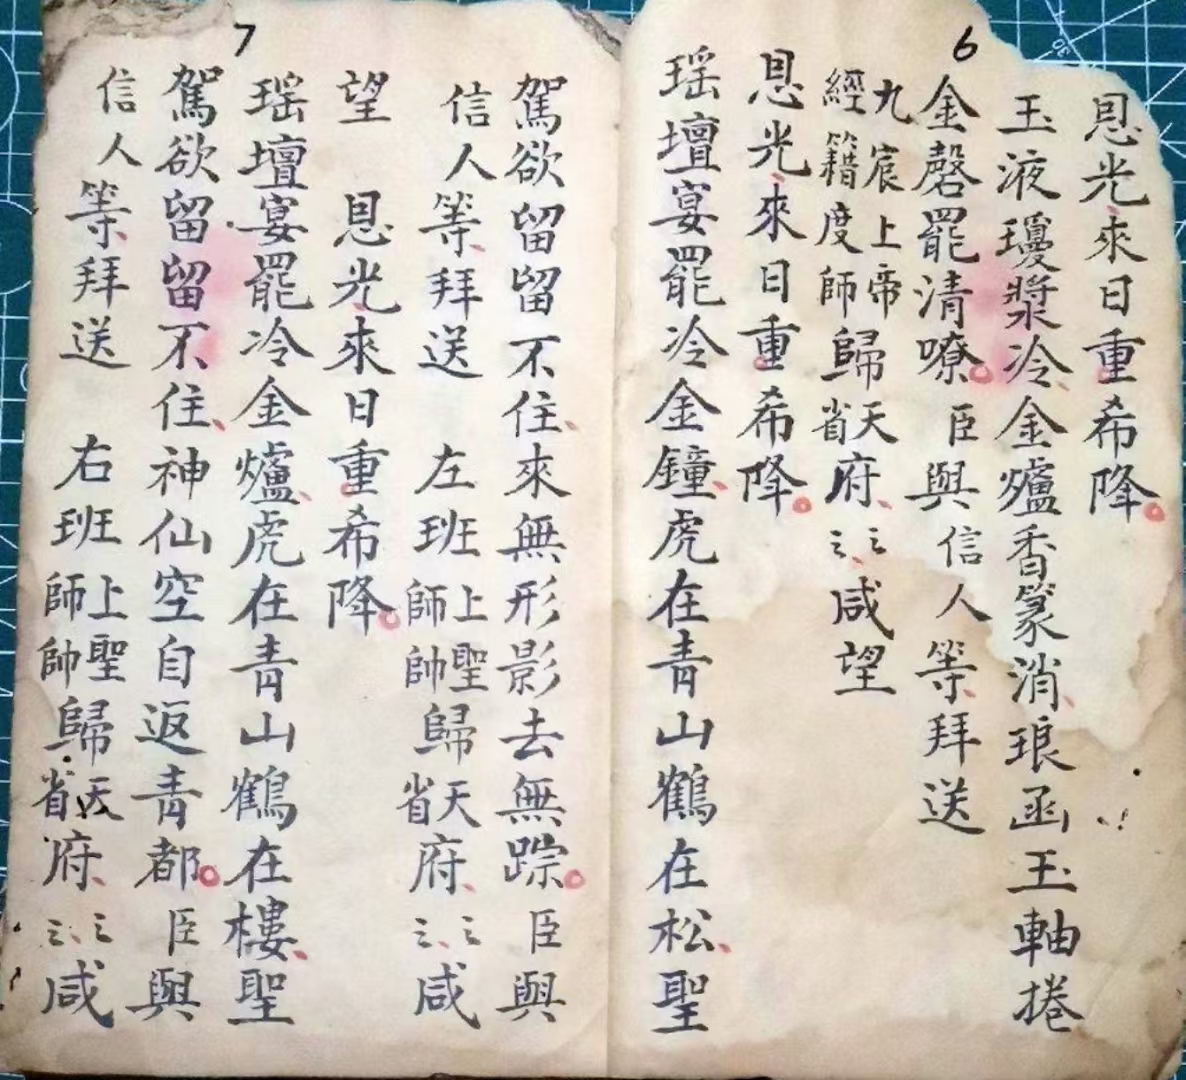 6
恩光來日重希降
玉液瓊漿冷金爐香篆消琅函玉軸捲
金磬罷清嘹臣與信人等拜送
九宸上帝經籍度師歸天省府㆓㆓咸望
恩光來日重希降
瑶壇宴罷冷金鐘虎在青山鶴在松聖
7
駕欲留留不住來無形影去無踪臣與
信人等拜送 左班上聖師帥歸天省府㆓㆓咸
望 恩光來日重希降
瑶壇宴罷冷金爐虎在青山鶴在樓聖
駕欲留留不住神仙空自返青都臣與
信人等拜送 右班上聖師帥歸天省府㆓㆓咸